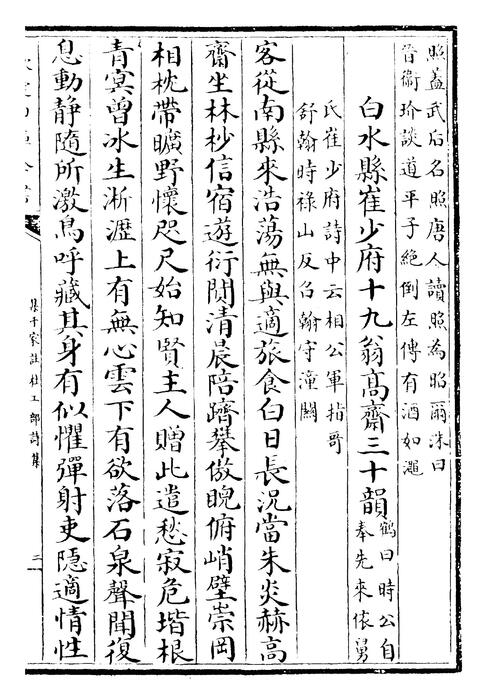 照蓋武后名照唐人讀照為昭爾洙曰
晉衞玠談道平子絕倒左傳有酒如澠
白水縣崔少府十九翁髙齋三十韻鶴曰時公自
奉先來依舅
氏崔少府詩中云相公軍指哥
舒翰時祿山反召翰守潼關
客從南縣來浩蕩無與適旅食白日長況當朱炎赫髙
齋坐林杪信宿遊衍閴清晨陪躋攀傲睨俯峭壁崇岡
相枕帶曠野懷咫尺始知賢主人贈此遣愁寂危堦根
青㝠曾冰生淅瀝上有無心雲下有欲落石泉聲聞復
息動静隨所激鳥呼藏其身有似懼彈射吏隠適情性
集千家註杜工部詩集